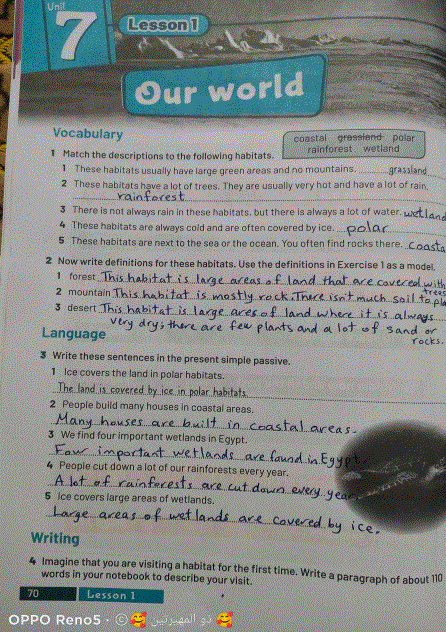 Unit
7
Lesson 1
Our world
Vocabulary
coastal grassland polar
rainforest wetland
1 Match the descriptions to the following habitats.
1 These habitats usually have large green areas and no mountains. grassland
2 These habitats have a lot of trees. They are usually very hot and have a lot of rain.
rainforest
3 There is not always rain in these habitats, but there is always a lot of water. wetland
4 These habitats are always cold and are often covered by ice. polar
5 These habitats are next to the sea or the ocean. You often find rocks there. coasta
2 Now write definitions for these habitats. Use the definitions in Exercise 1 as a model.
1 forest This habitat is large areas of land that are covered with
trees
2 mountain This habitat is mostly rock. There isn't much soil to pla
3 desert This habitat is large ares of land where it is always
very dry; there are few plants and a lot of sand or
rocks.
Language
3 Write these sentences in the present simple passive.
1 Ice covers the land in polar habitats.
The land is covered by ice in polar habitats.
2 People build many houses in coastal areas.
Many houses are built in coastal areas.
3 We find four important wetlands in Egypt.
Four important wetlands are found in Egypt.
4 People cut down a lot of our rainforests every year.
A lot of rainforests are cut down every year.
5 Ice covers large areas of wetlands.
Large areas of wetlands are covered by ice.
Writing
4 Imagine that you are visiting a habitat for the first time. Write a paragraph of about 110
words in your notebook to describe your visit.
70 Lesson 1
OPPO Reno5 · © 🥰 ذو المهيرتين 🥰